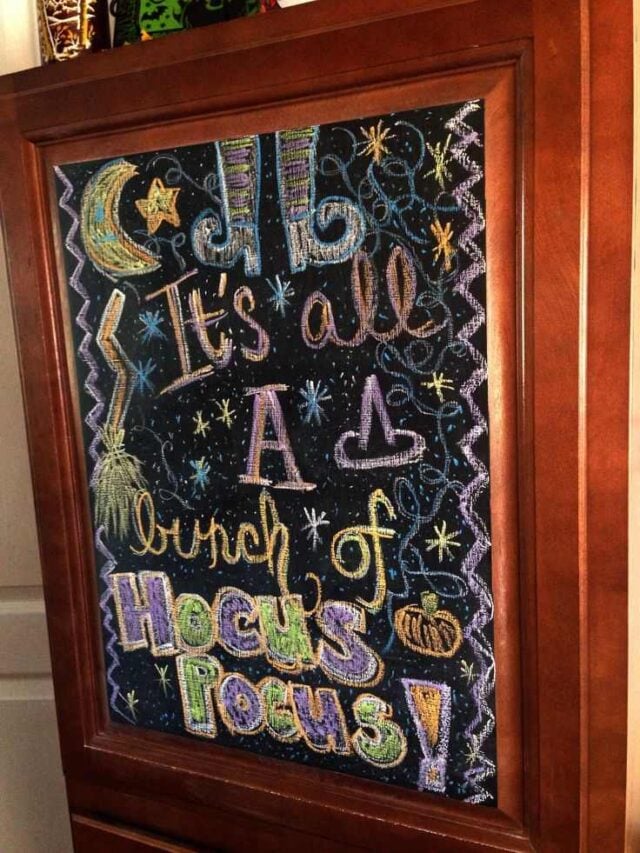 It's all
A
bunch of
HOCUS
POCUS!